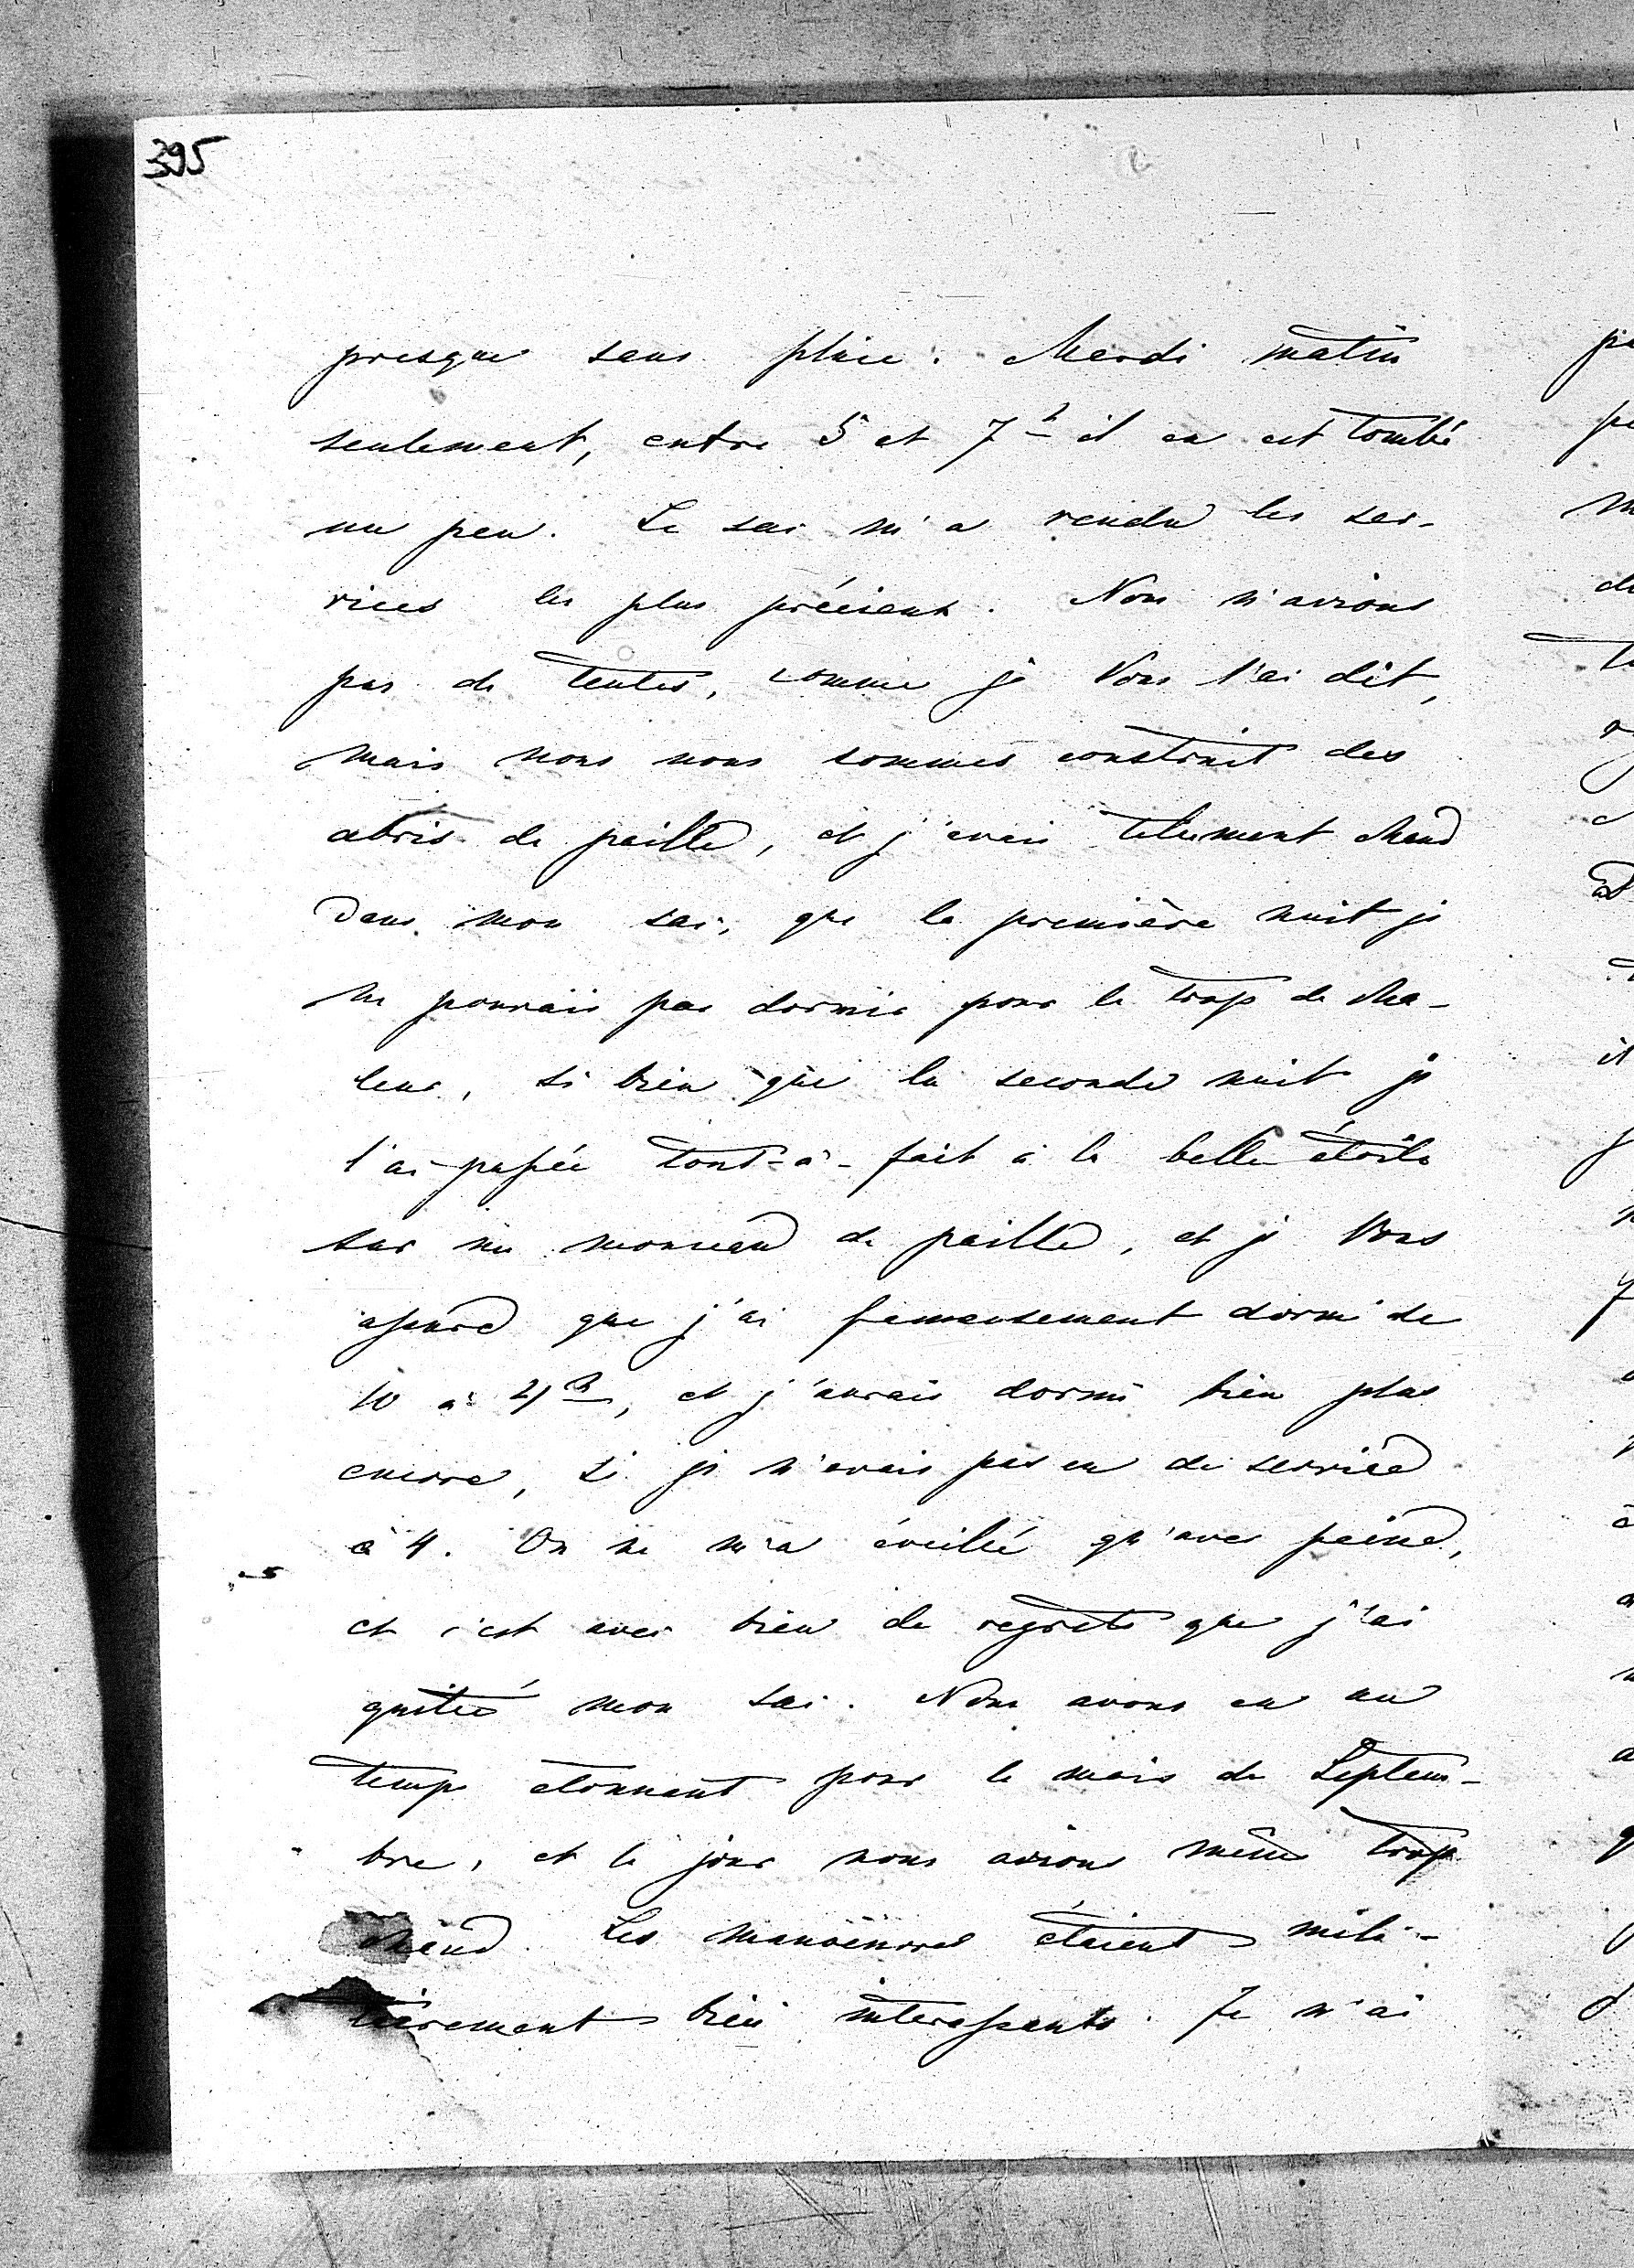 395
presque sans pluie. Mardi matin
seulement, entre 5 et 7h il en est tombé
un peu. Le sac m'a rendu les ser-
vices les plus précieux. Nous n'avions
pas de tentes, comme je Vous l'ai dit,
mais nous nous sommes construit des
abris de paille, et j'avais tellement chaud
dans mon sac, que la première nuit je
ne pouvais pas dormir pour le trop de cha-
leur, si bien que la seconde nuit je
l'ai passée tout-à-fait à la belle étoile
sur un monceau de paille, et je Vous
assure que j'ai fameusement dormi de
10 à 4h, et j'aurais dormi bien plus
encore, si je n'avais pas eu de service
à 4. On ne m'a éveillé qu'avec peine,
et c'est avec bien de regrets que j'ai
quitté mon sac. Nous avons eu un
temps étonnant pour le mois de Septem-
bre, et le jour nous avions même trop
chaud. Les manoeuvres étaient mili-
tairement bien interessants. Je n'ai